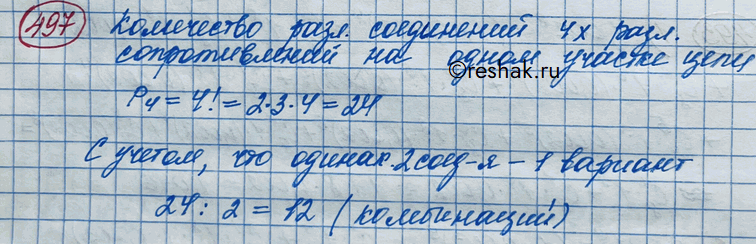 497 Количество разл. соединений 4х разл.
сопротивлений на одном участке цепи
©reshak.ru
P₄ = 4! = 2·3·4 = 24
С учетом, что одинак. 2 соед-я – 1 вариант
24 : 2 = 12 (комбинаций)